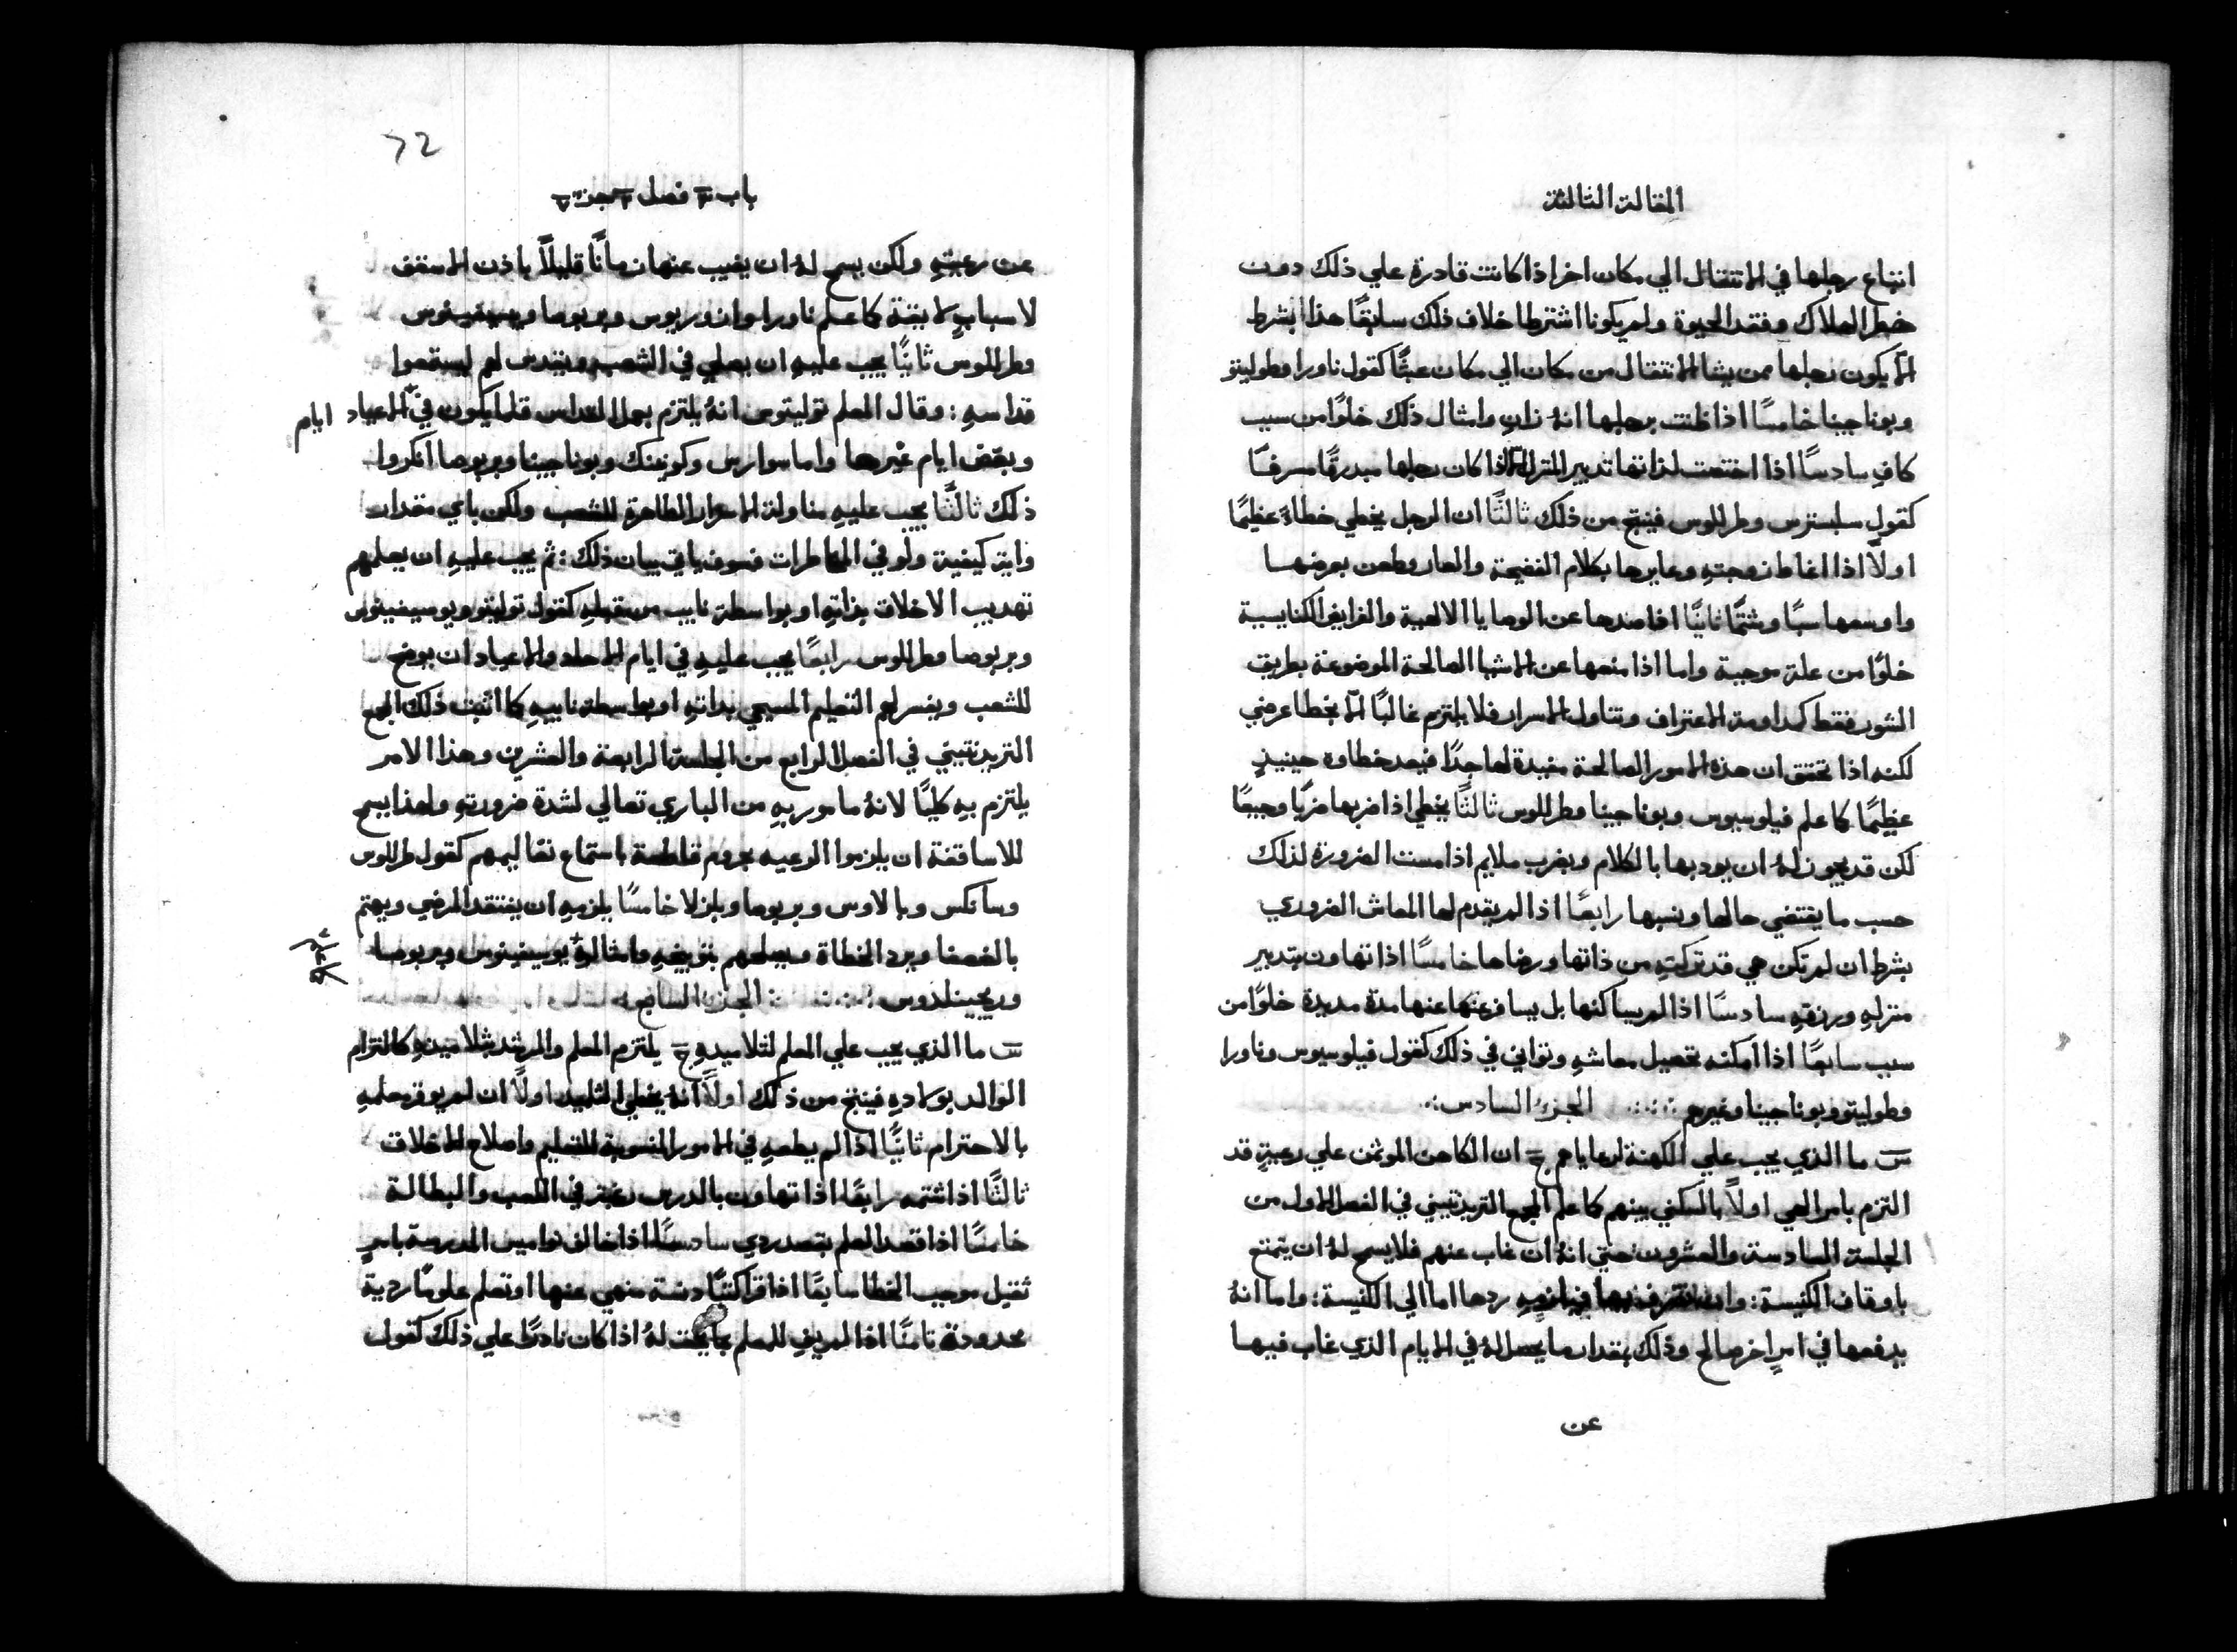 المقالة الثالثة
اتباع رجلها في الانتقال الي مكان اخر اذا كانت قادرة علي ذلك دون
خطر الهلاك وفقد الحيوة ولم يكونا اشترطا خلاف ذلك سابقًا هذا بشرط
الا يكون رجلها ممن يشا الانتقال من مكان الي مكان عبثًا كقول ناورا وطوليتو
وبوناجينا خامسًا اذا ظنت برجلها انهُ زانٍ وامثال ذلك خلوًا من سبب
كافٍ سادسًا اذا اختصت لذاتها تدبير المنزل الا اذا كان رجلها مبدرقًا مسرفًا
كقول سلبسترس وطرللوس فينتج من ذلك ثالثًا ان الرجل يخطي خطاءً عظيمًا
اولاً اذا اغاظ زوجتهِ وعايرها بكلام الفضيحة والعار وطعن بعرضها
واوسعها سبًا وشتمًا ثانيًا اذا صدها عن الوصايا الالهية والفرايض الكنايسية
خلوًا من علة موجبة واما اذا منعها عن الاشيا الصالحة الموضوعة بطريق
الشور فقط كمداومة الاعتراف وتناول الاسرار فلا يلتزم غالبًا الا بخطا عرضي
لكنه اذا تحقق ان هذه الامور الصالحة مفيدة لها جدًا فيعد خطاوه حينيذٍ
عظيمًا كما علم فيلوسيوس وبوناجينا وطرللوس ثالثًا يخطي اذا ضربها ضربًا وجيعًا
لكن قد يجوز لهُ ان يودبها بالكلام وبضرب ملايم اذا مست الضرورة لذلك
حسب ما يقتضي حالها ونسبها رابعًا اذا لم يقدم لها المعاش الضروري
بشرط ان لم تكن هي قد تركتهِ من ذاتها ورضاها خامسًا اذا تهاون بتدبير
منزلهِ ورزقهِ سادسًا اذا لم يساكنها بل يسافر عنها مدة مديدة خلوًا من
سبب سابعًا اذا امكنه تحصيل معاشهِ وتواني في ذلك كقول فيلوسيوس وناورا
وطوليتو وبوناجينا وغيرهم الجزء السادس
س ما الذي يجب علي الكهنة لرعاياهم ج ان الكاهن الموتمن علي رعيةٍ قد
التزم بامر الهي اولاً بالسكني بينهم كما علم المجمع التريدنتيني في الفصل الاول من
الجلسة السادسة والعشرون حتي انهُ ان غاب عنهم فلا يسمح لهُ ان يتمتع
باوقاف الكنيسة: وان ردها اما الي الكنيسة: واما انهُ
يدفعها في امرٍ اخر صالح وذلك بمقدار ما يحصل لهُ في الايام الذي غاب فيها
عن
72
باب فصل جزء
عن رعيتهِ ولكن يسمح لهُ ان يغيب عنها زمانًا قليلاً باذن الاسقف
لاسبابٍ لايقة كما علم ناورا وبربوصا
وطرللوس ثانيًا يجب عليهِ ان يصلي في الشعب ويقدس لهم ليستمعوا
قداسهِ: وقال المعلم توليتوس انهُ يلتزم بهذا القداس قلما يكون في الاعياد ايام
وبعض ايام غيرها واما سوارس وكونينك وبوناجينا وبربوصا انكروا
ذلك ثالثًا يجب عليهِ مناولة الاسرار الطاهرة للشعب ولكن باي مقدار
واية كيفية ولو في المخاطرات فسوف ياتي بيان ذلك: ثم يجب عليهِ ان يعلمهم
تهديب الاخلاق بذاتهِ او بواسطة نايب من قبلهِ كقول توليتو ويوسيفينوس
وبربوصا وطرللوس رابعًا يجب عليهِ في ايام الاحاد والاعياد ان يوضح
للشعب ويفسر لهم التعليم المسيحي بداتهِ او بواسطة نايبهِ كما اثبت ذلك المجمع
التريدنتيني في الفصل الرابع من الجلسة الرابعة والعشرين وهذا الامر
يلتزم بهِ كليًا لانهُ مامور بهِ من الباري تعالي لشدة ضرورتهِ ولهذا يسمح
للاساقفة ان يلزموا الرعيه بحروم قاطعة باستماع تعاليمهم كقول طرللوس
وسانكس وبالاوس وبربوصا خامسًا يلزمهِ ان يفتقد المرضي ويهتم
بالضعفا ويرد الخطاة ويصلحهم بتوبيخهِ وامثالهُ يوسيفينوس وبربوصا
وريجينلدوس الجزء السابع
س ما الذي يجب علي المعلم لتلاميدهِ ج يلتزم المعلم والمرشد بتلاميدهِ كالتزام
الوالد بولادهِ فينتج من ذلك اولاً انهُ يخطي التلميد اولاً ان لم يوقر معلمهِ
بالاحترام ثانيًا اذا لم يطعهِ في الامور المنسوبة للتعليم واصلاح الاخلاق
ثالثًا اذا شتمه رابعًا اذا تهاون بالدرس رغبة في اللعب والبطالة
خامسًا اذا قصد العلم بقصد ردي سادسًا اذا خالف نواميس المدرسة بامرٍ
ثقيل موجب الخطا سابعًا اذا قرا كتبًا دنسة منهي عنها او تعلم علومًا ردية
محدودة ثامنًا اذا لم يفِ للمعلم لهُ اذا كان قادرًا علي ذلك كقول